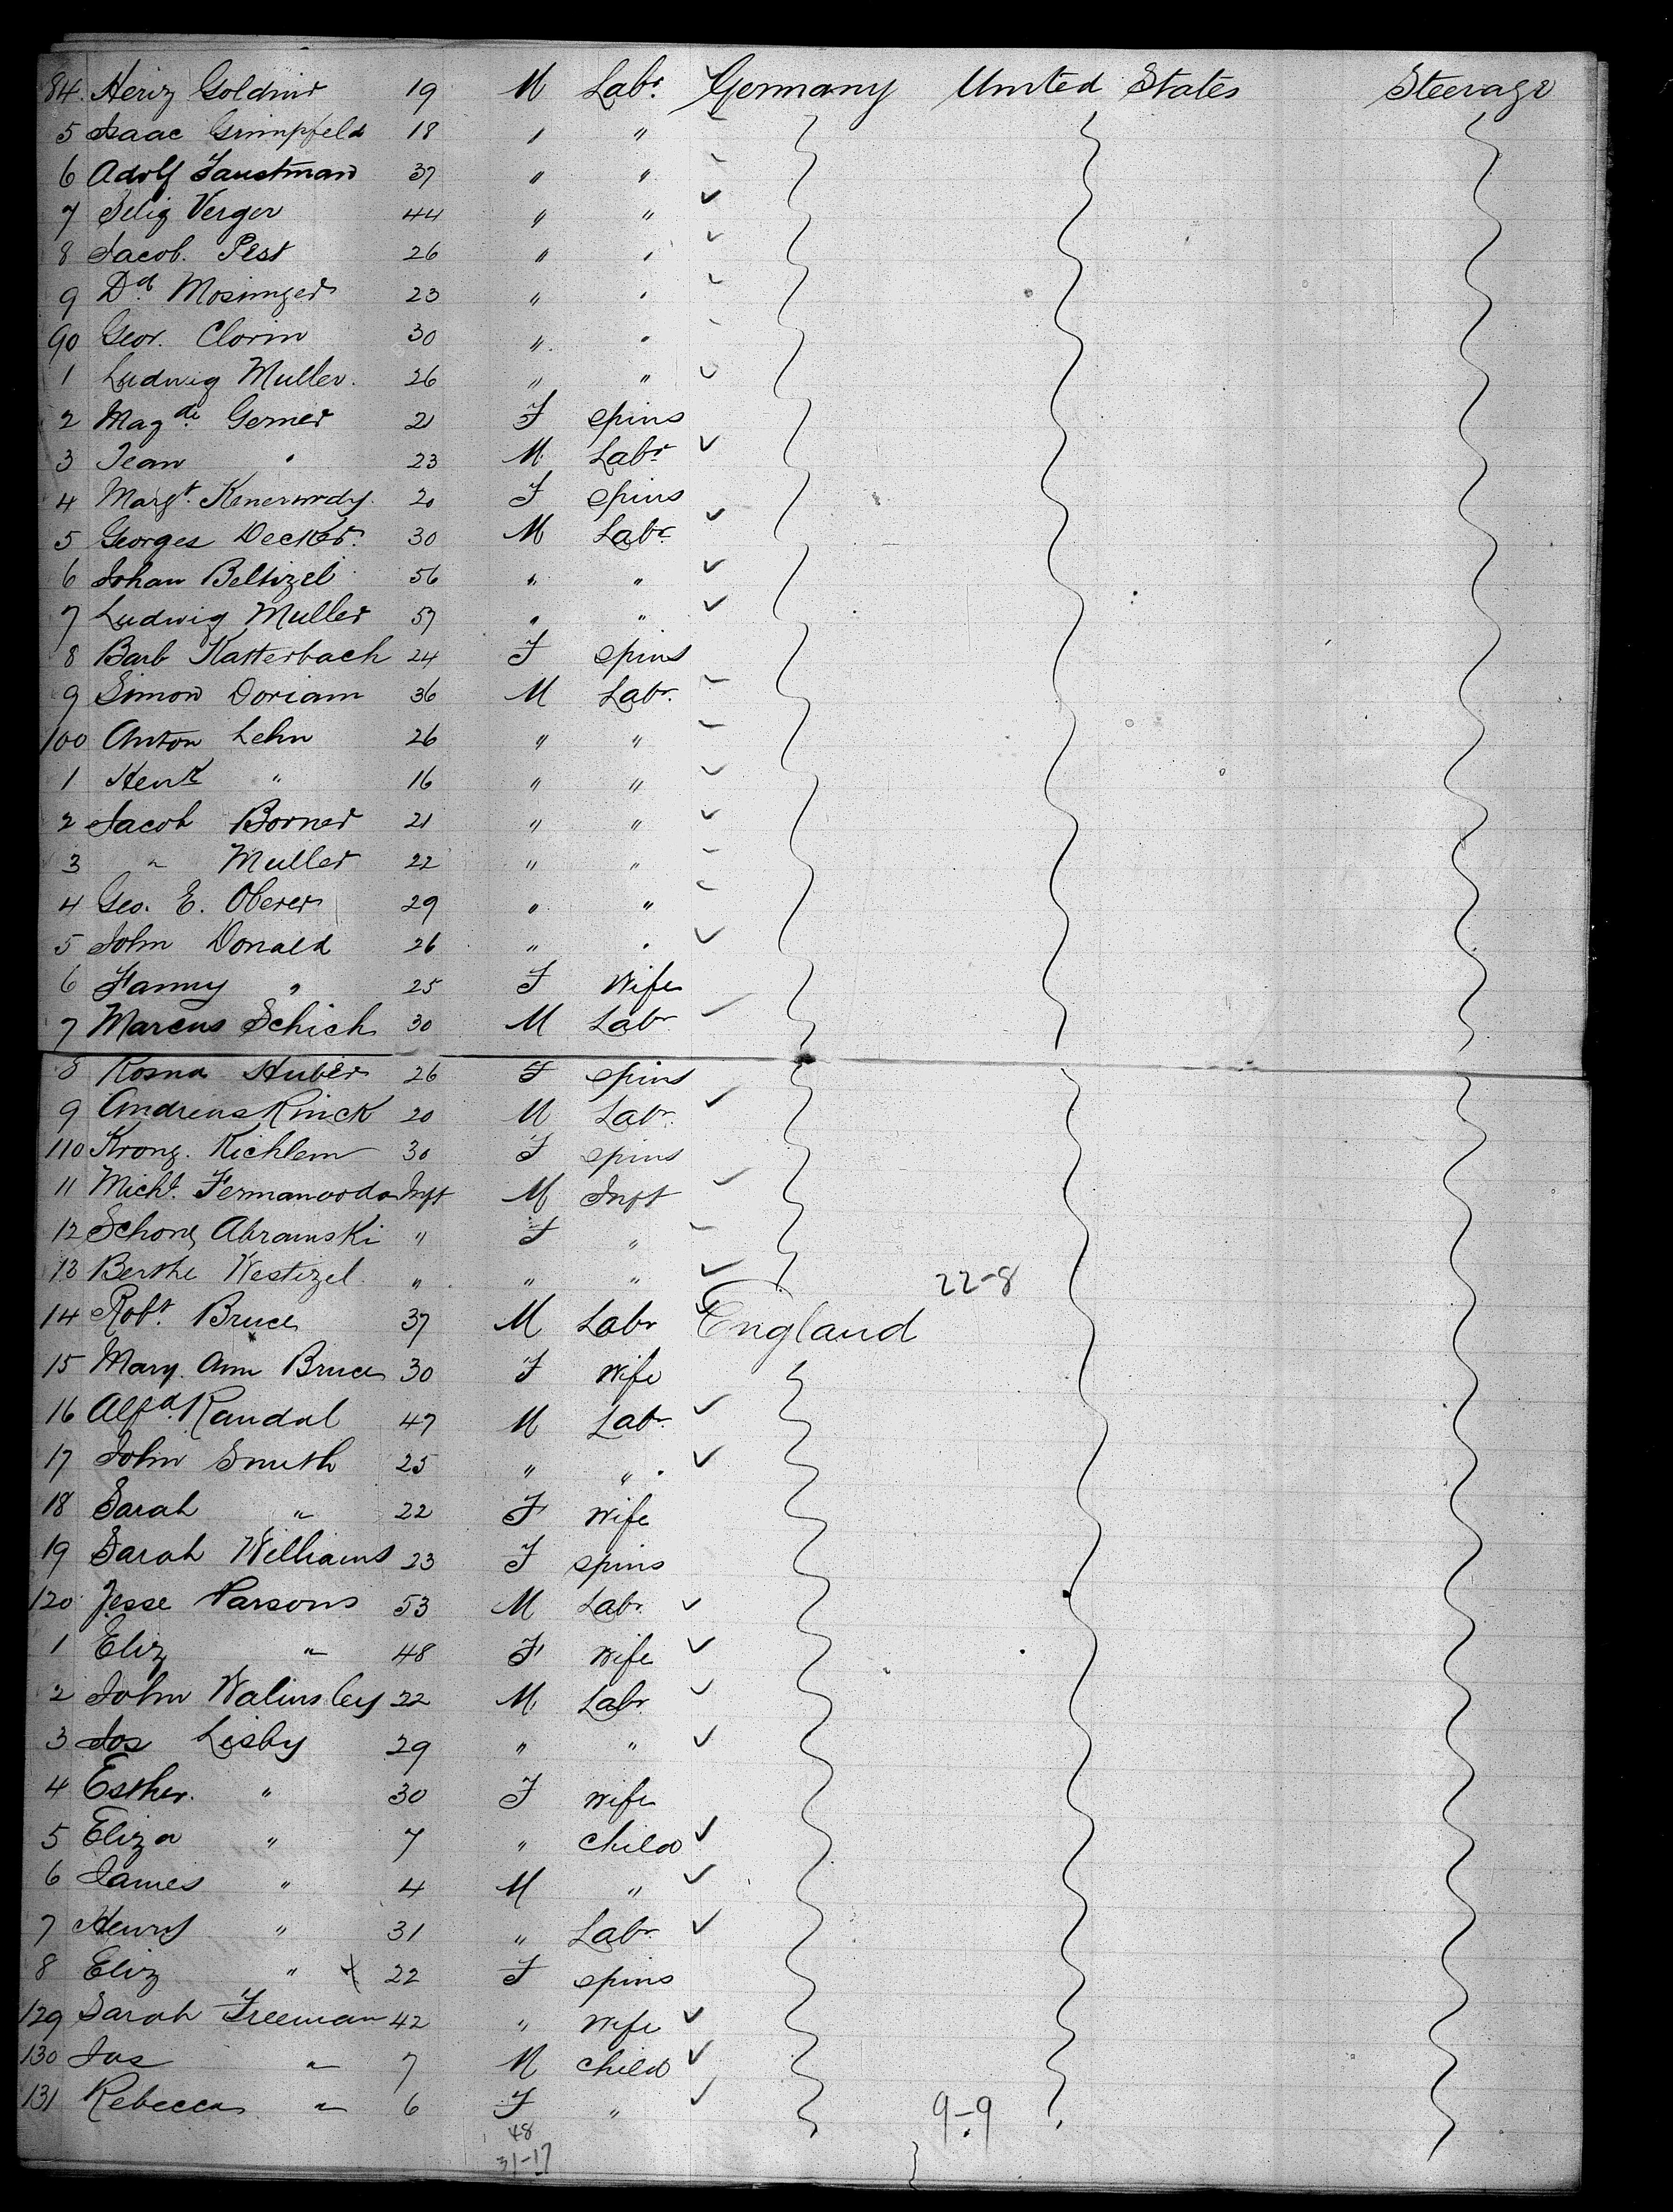 84. Heriz Goldnir 19 M Labr. Germany United States Steerage
5 Isaac Gimpfeld 18 " "
6 Adolf Faustman 37 " "
7 Selig Verger 44 " "
8 Jacob. Pest 26 " "
9 Dd. Mosinger 23 " "
90 Geor. Clorin 30 " "
1 Ludwig Muller. 26 " "
2 Magde. Gerner 21 F spins
3 Jean " 23 M Labr
4 Margt. 20 F spins
5 Georges Decker. 30 M Labr.
6 Johan Beltizel 56 " "
7 Ludwig Muller 57 " "
8 Barb Katterbach 24 F spins
9 Simon Doriam 36 M Labr.
100 Anton Lehn 26 " "
1 " 16 " "
2 Jacob Borner 21 " "
3 " Muller 22 " "
4 Geo. E. Oberer 29 " "
5 John Donald 26 " "
6 Fanny " 25 F Wife
7 Marcus Schich 30 M Labr
8 Rosna Huber 26 F spins
9 Andreas Rinck 20 M Labr.
110 Krong. Kichlem 30 F spins
11 Michl. Infr M Infr
12 Schone Abramski " F "
13 Berthe Westizel " " "
22-8
14 Robt. Bruce 37 M Labr England
15 Mary Ann Bruce 30 F Wife
16 Alfd. Randal 47 M Labr.
17 John Smith 25 " "
18 Sarah " 22 F Wife
19 Sarah Williams 23 F spins
120 Jesse Parsons 53 M Labr.
1 Eliz " 48 F Wife
2 John Walinsley 22 M Labr
3 Jos Lisby 29 " "
4 Esther. " 30 F wife
5 Eliza " 7 " child
6 James " 4 M "
7 Henry " 31 " Labr
8 Eliz " X 22 F spins
129 Sarah Freeman 42 " Wife
130 Jas " 7 M child
131 Rebecca " 6 F "
9-9
48
31-17